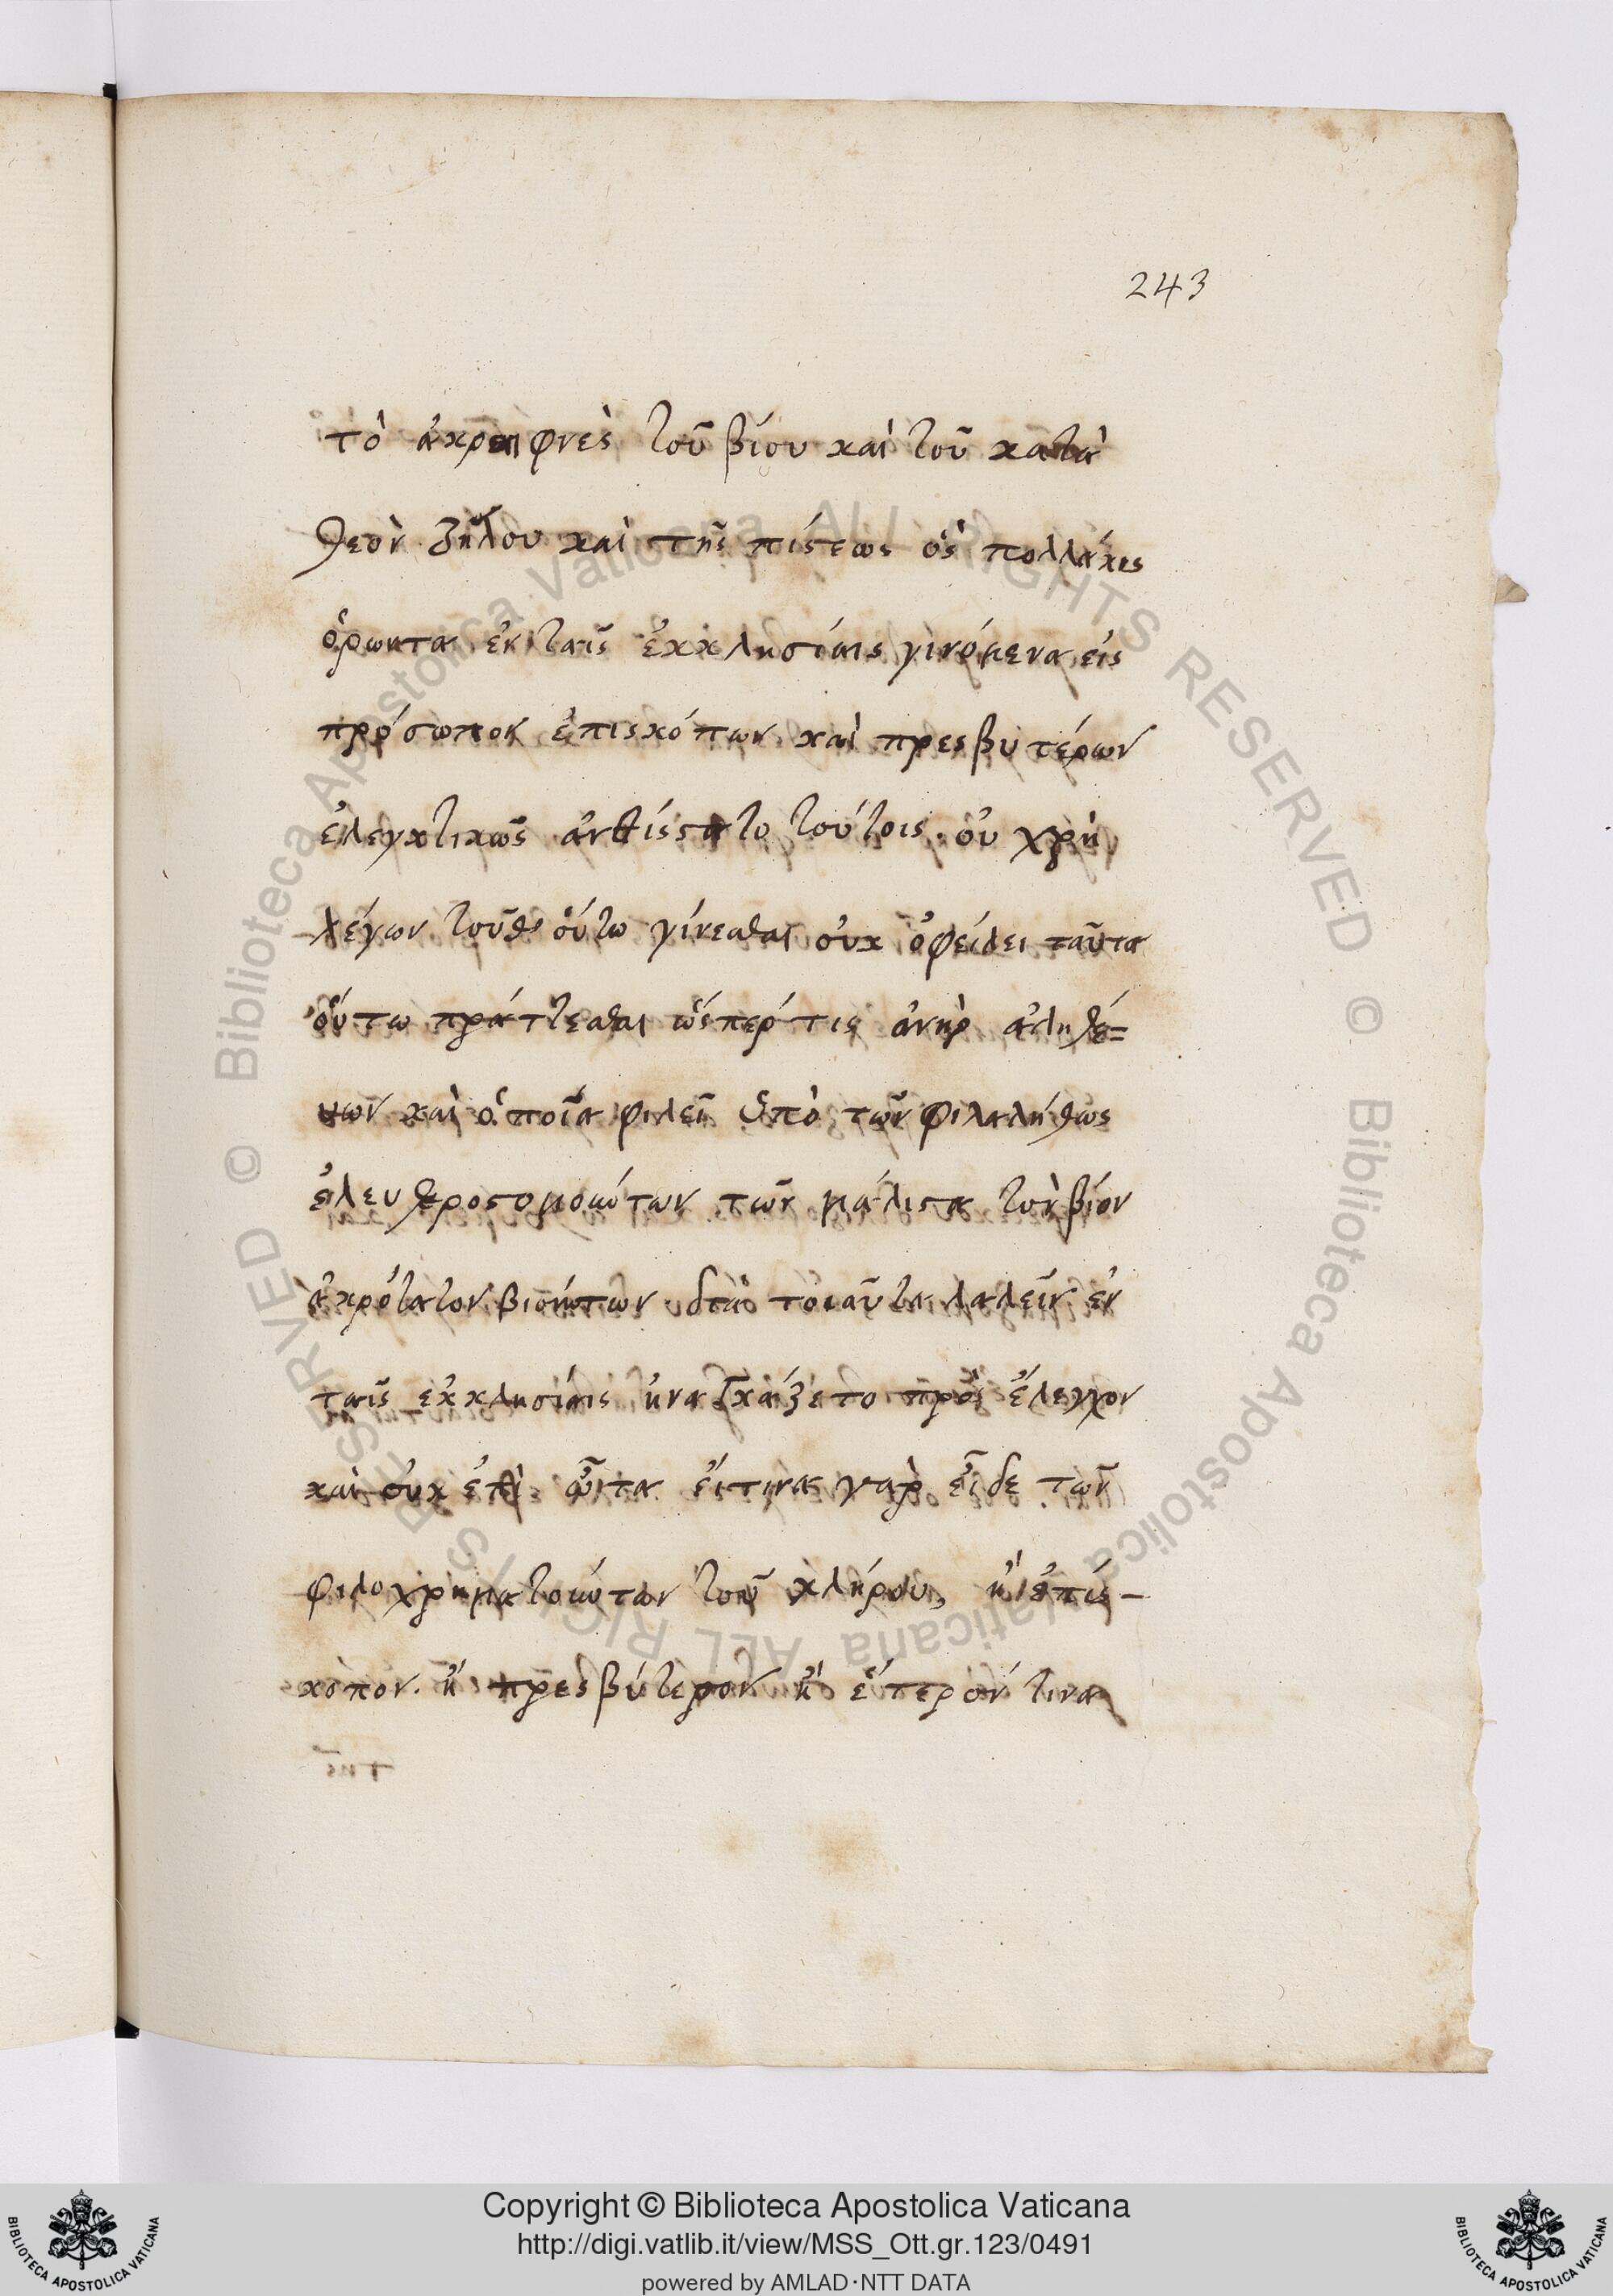 243
τὸ ἀκραιφνὲς τοῦ βίου καὶ τοῦ κατὰ
θεὸν ζήλου καὶ τῆς πίστεως ὃς πολλάκις
ὁρῶντα ἐν ταῖς ἐκκλησίαις γινόμενα εἰς
πρόσωπον ἐπισκόπων καὶ πρεσβυτέρων
ἐλεγκτικῶς ἀνθίστατο τούτοις. οὐ χρὴ
λέγων τοῦθ' οὕτω γίνεσθαι οὐκ ὀφείλει ταῦτα
οὕτω πράττεσθαι ὥσπερ τις ἀνὴρ ἀληθέ=
υων καὶ ὁποῖα φιλεῖ ὑπὸ τῶν φιλαλήθως
ἐλευθεροστομούντων τῶν μάλιστα τὸν βίον
ἀκρότατον βιούντων διὰ τοιαῦτα λαλεῖν ἐν
ταῖς ἐκκλησίαις ἠναγκάζετο πρὸς ἔλεγχον
καὶ οὐκ ὦτα εἴ τινα γὰρ εἶδε τῶν
φιλοχρηματούντων τοῦ κλήρου, ἢ ἐπίσ-
κοπον. ἢ πρεσβύτερον ἢ ἕτερόν τινα
Copyright © Biblioteca Apostolica Vaticana
http://digi.vatlib.it/view/MSS_Ott.gr.123/0491
powered by AMLAD·NTT DATA